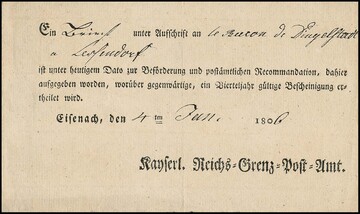 Ein Brief unter Aufschrift an le Baron de Dingelstädt
a Lessendorf
ist unter heutigem Dato zur Beförderung und postämtlichen Recommandation, dahier
aufgegeben worden, worüber gegenwärtige, ein Vierteljahr gültige Bescheinigung er-
theilet wird.
Eisenach, den 4 ten Jun. 1806
Kayserl. Reichs-Grenz-Post-Amt.